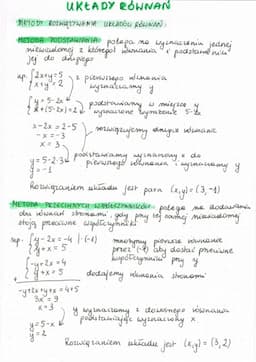 UKŁADY RÓWNAŃ
METODY ROZWIĄZYWANIA UKŁADÓW RÓWNAŃ:
METODA PODSTAWIANIA: polega na wyznaczeniu jednej
niewiadomej z któregoś równania i podstawieniu
jej do drugiego
np. { 2x+y=5 z pierwszego równania
x+y=2 wyznaczamy y
{ y=5-2x podstawiamy w miejsce y
x+(5-2x)=2 wyznaczone wyrażenie 5-2x
x-2x=2-5 rozwiązujemy drugie równanie
-x=-3
x=3 podstawiamy wyznaczony x do
y=5-2·3 pierwszego równania i wyznaczamy y
y=-1
Rozwiązaniem układu jest para (x,y)=(3,-1)
METODA PRZECIWNYCH WSPÓŁCZYNNIKÓW: polega na dodawaniu
do równań stronami, gdy przy tej samej niewiadomej
stoją przeciwne współczynniki
np. { y-2x=-4 |·(-1) mnożymy pierwsze równanie
y+x=5 przez (-1) aby dostać przeciwne
współczynniki przy y
{ -y+2x=4
y+x=5 dodajemy równania stronami
-y+2x+y+x=4+5
3x=9
x=3 y wyznaczamy z drugiego równania
y=5-x podstawiając wyznaczony x
y=2
Rozwiązaniem układu jest (x,y)=(3,2)